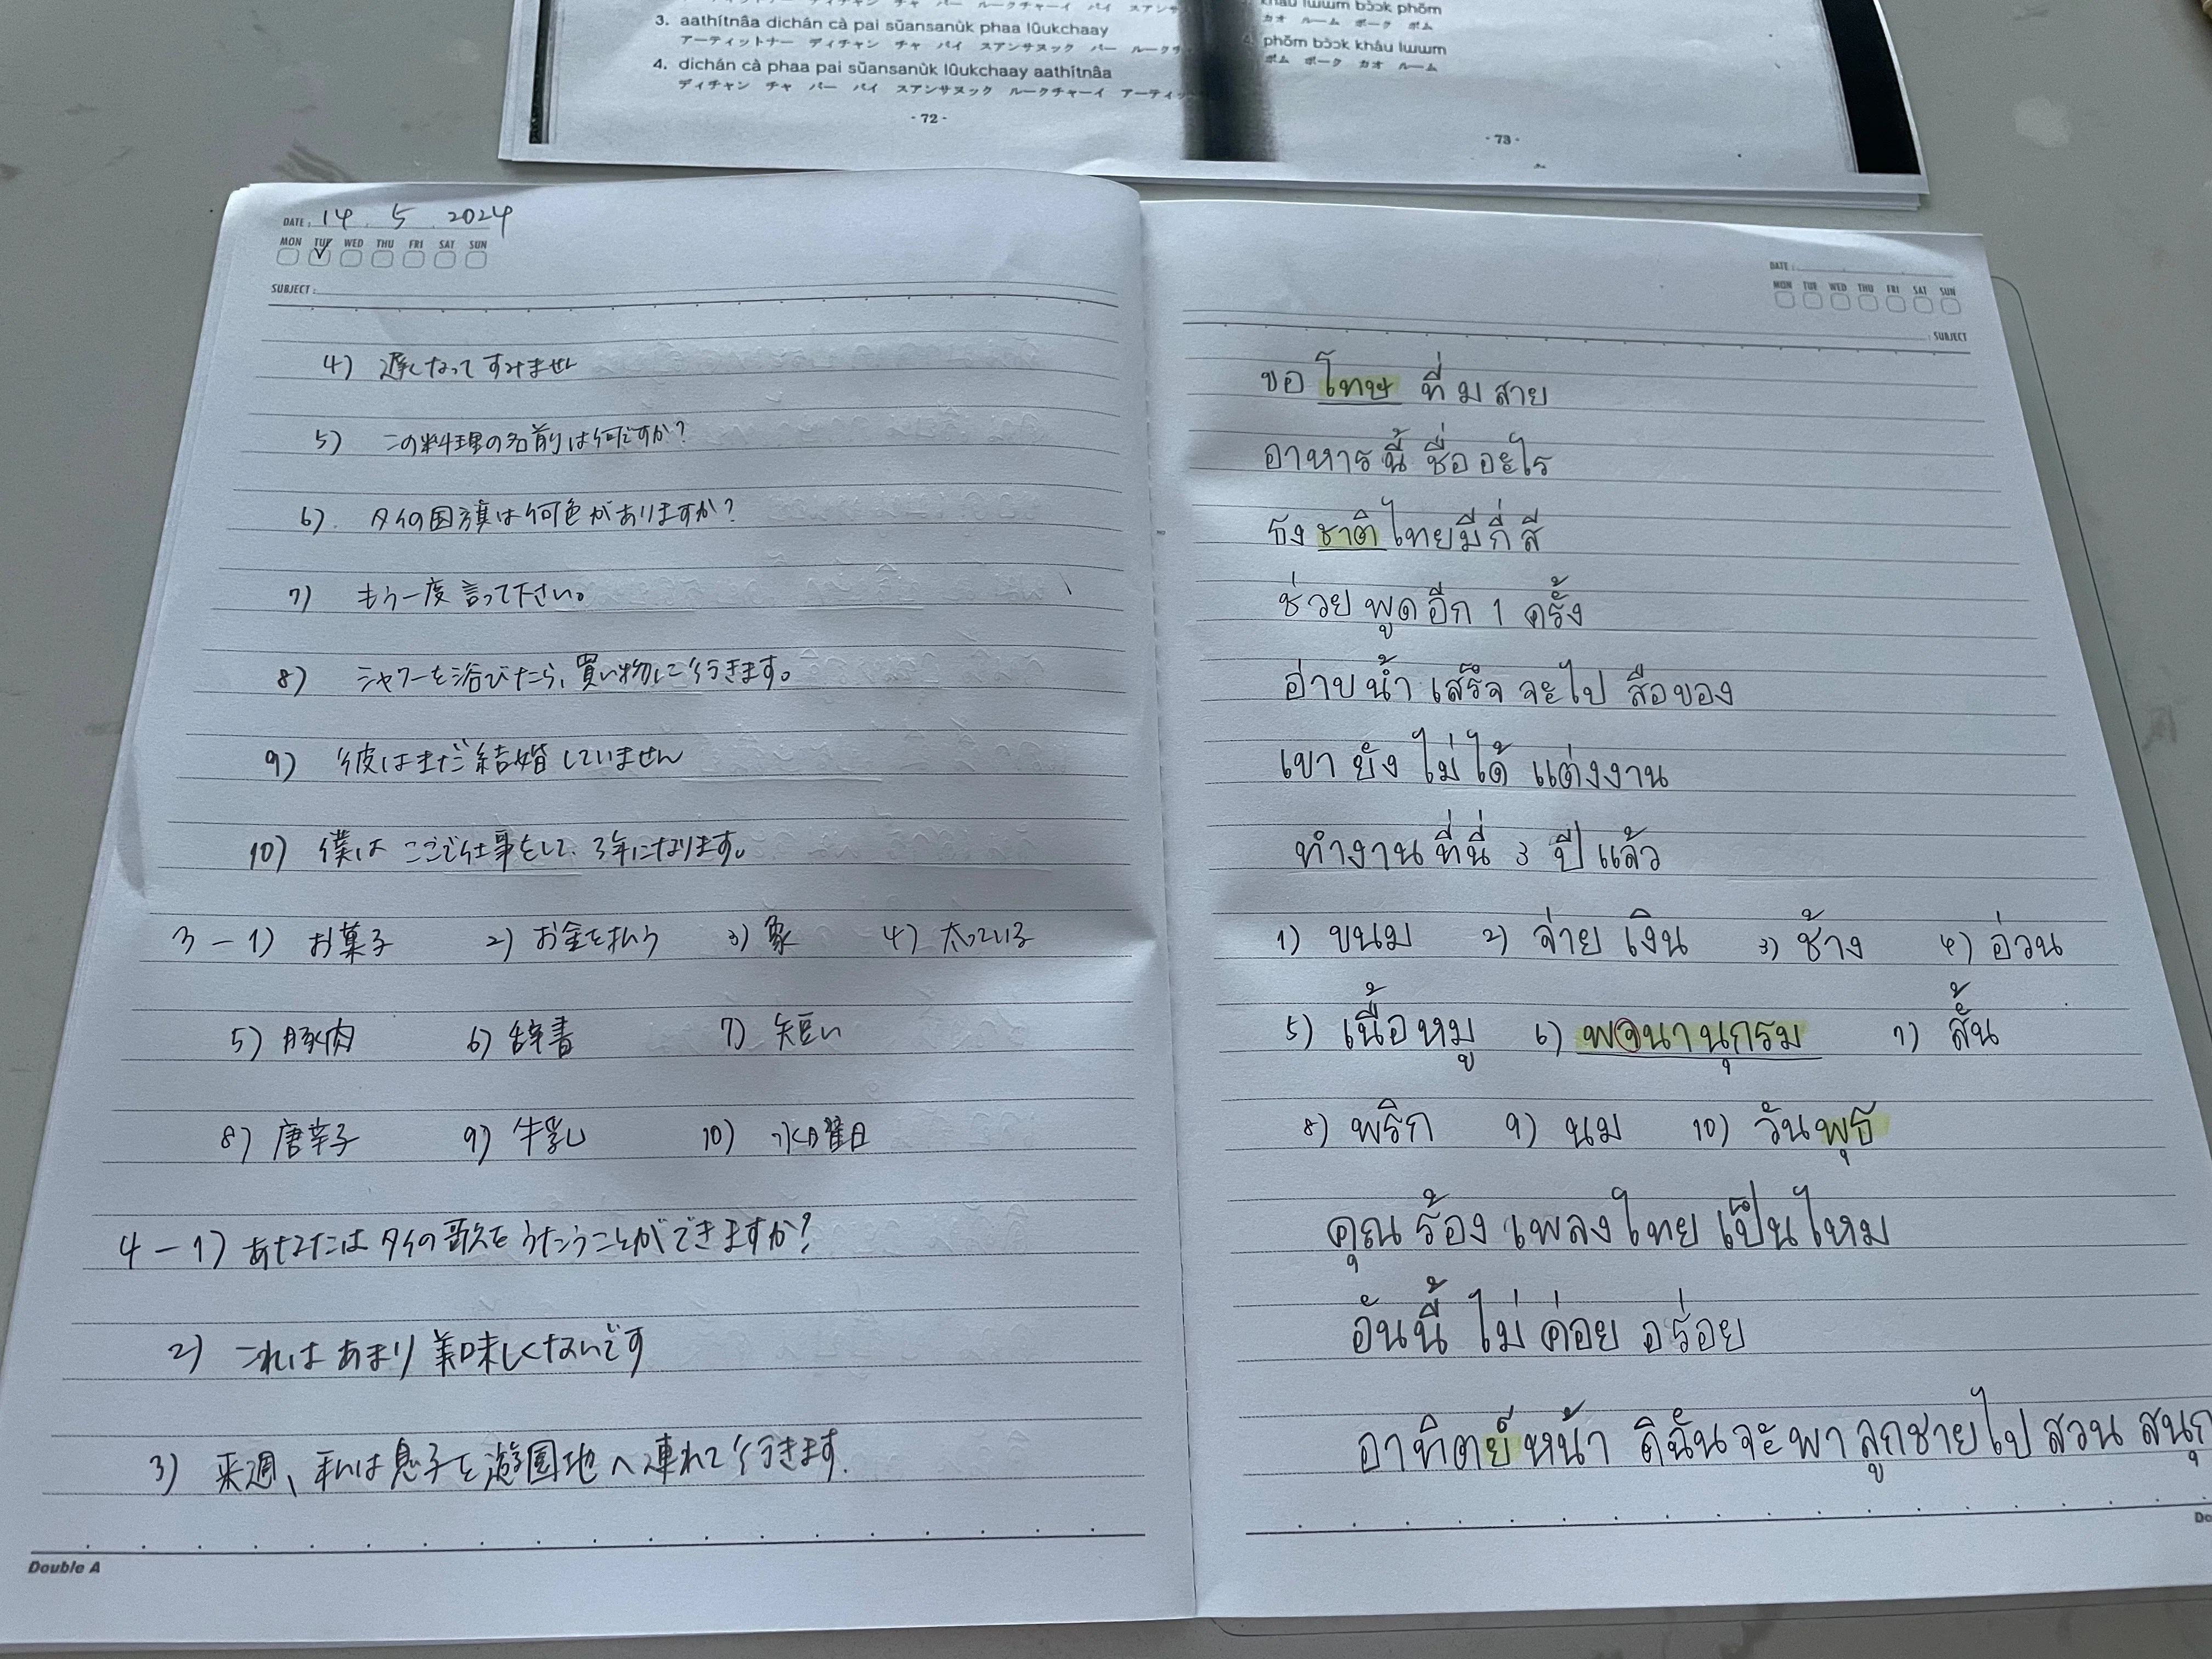 3. aathítnâa dichán cà pai sŭansanùk phaa lûukchaay
アーティットナー ディチャン チャ パイ スアンサヌック パー ルークチ
4. dichán cà phaa pai sŭansanùk lûukchaay aathítnâa
ディチャン チャ パー パイ スアンサヌック ルークチャーイ アーティッ
- 72 -
khău lɯɯm bɔ̀ɔk phŏm
カオ ルーム ボーク ポム
4. phŏm bɔ̀ɔk kháu lɯɯm
ポム ボーク カオ ルーム
- 73 -
DATE : 14 . 5 . 2024
MON TUE WED THU FRI SAT SUN
SUBJECT :
4) 遅くなってすみません
5) この料理の名前は何ですか?
6) タイの国旗は何色がありますか?
7) もう一度言って下さい。
8) シャワーを浴びたら、買い物に行きます。
9) 彼はまだ結婚していません
10) 僕はここで仕事をして、3年になります。
3-1) お菓子 2) お金を払う 3) 象 4) 太っている
5) 豚肉 6) 辞書 7) 短い
8) 唐辛子 9) 牛乳 10) 水曜日
4-1) あなたはタイの歌をうたうことができますか?
2) これはあまり美味しくないです
3) 来週、私は息子を遊園地へ連れて行きます.
Double A
DATE :
MON TUE WED THU FRI SAT SUN
: SUBJECT
ขอ โทษ ที่ ม สาย
อาหาร นี้ ชื่อ อะไร
ธง ชาติ ไทย มี กี่ สี
ช่วย พูด อีก 1 ครั้ง
อ่าบ น้ำ เสร็จ จะไป สือของ
เขา ยัง ไม่ ได้ แต่งงาน
ทำงาน ที่นี่ 3 ปี แล้ว
1) ขนม 2) จ่าย เงิน 3) ช้าง 4) อ่วน
5) เนื้อหมู 6) พจนานุกรม 7) สั้น
8) พริก 9) นม 10) วันพุธ
คุณ ร้อง เพลง ไทย เป็น ไหม
อันนี้ ไม่ ค่อย อร่อย
อาทิตย์ หน้า ดิฉัน จะ พา ลูกชาย ไป สวน สนุก
Do